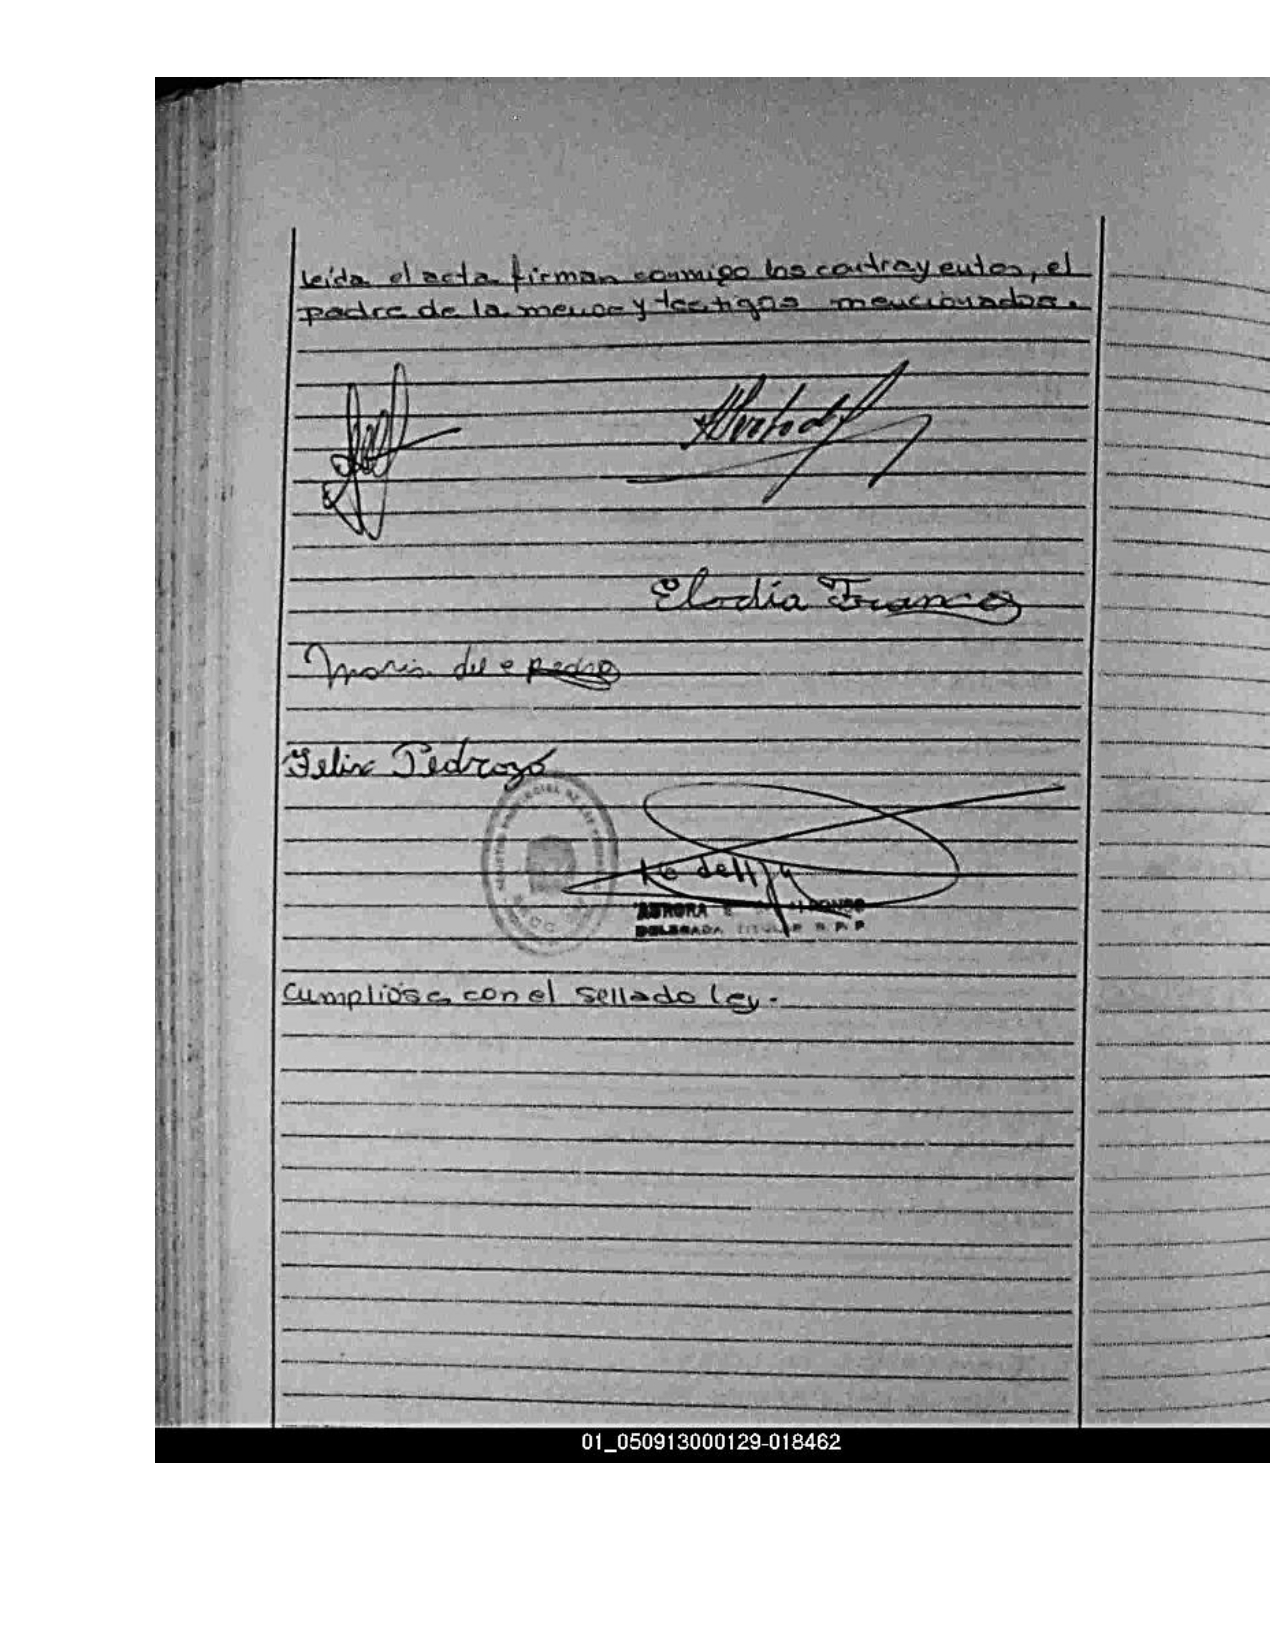 leída el acta firman conmigo los contrayentes, el
padre de la menor y testigos mencionados.
Elodia Franco
Maria del e pedro
Felix Pedrozo
AURORA E
DELEGADA TITULAR R. P. P.
Cumpliose con el sellado Ley.-
01_050913000129-018462